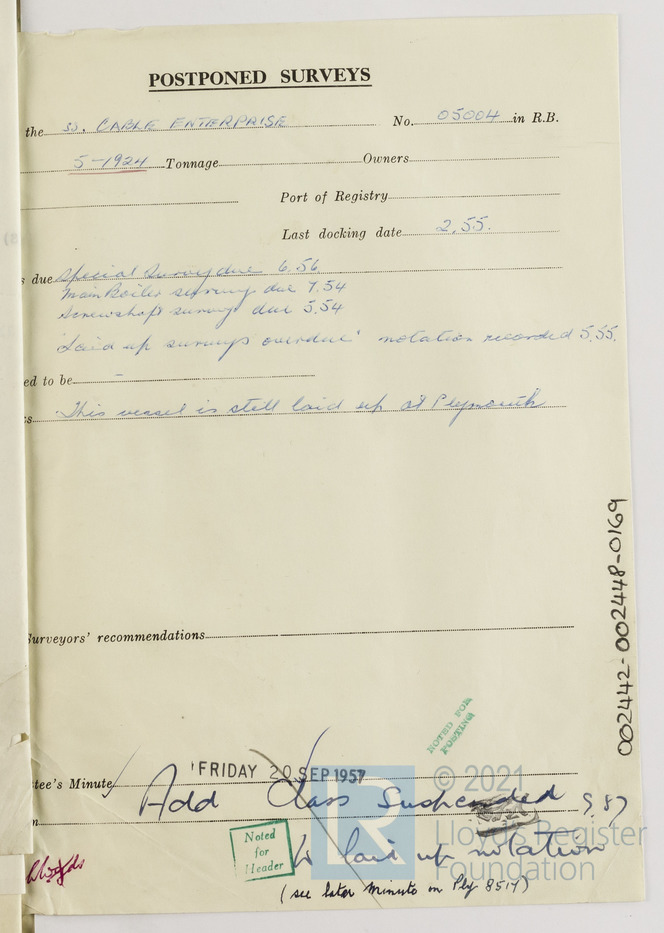 POSTPONED SURVEYS
the ss. CABLE ENTERPRISE No. 05004 in R.B.
5-1924 Tonnage Owners
Port of Registry
Last docking date 2.55.
s due Special Survey due 6.56
Main Boiler survey due 7.54
Screwshaft survey due 5.54
'Laid up surveys overdue' notation recorded 5.55.
ed to be –
s This vessel is still laid up at Plymouth
Surveyors' recommendations
NOTED FOR
POSTING
tee's Minute FRIDAY 20 SEP 1957
Add Class Suspended 9.57
Noted
for
Header
to laid up notation
(see later minute on Ply 8517)
002442-002448-0169
LR
© 2021
Lloyd's Register
Foundation